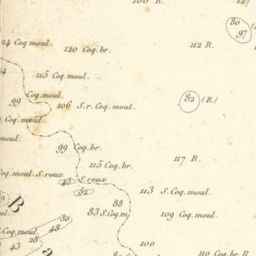 100 R.
127
80
97
124 Coq moul.
120 Coq. br.
112 R.
115 Coq. moul.
Coq. moul.
99
106 S. r. Coq. moul.
82 (R.)
Coq. moul.
moul.
99 Coq. br.
115 Coq. br.
117 R.
Coq. moul. S. roux
S. roux
113 S. Coq. moul.
88
83 S. Coq. m
109 Coq. moul.
B
30
48
Coq. moul.
28
43
100
110 Coq. br. R